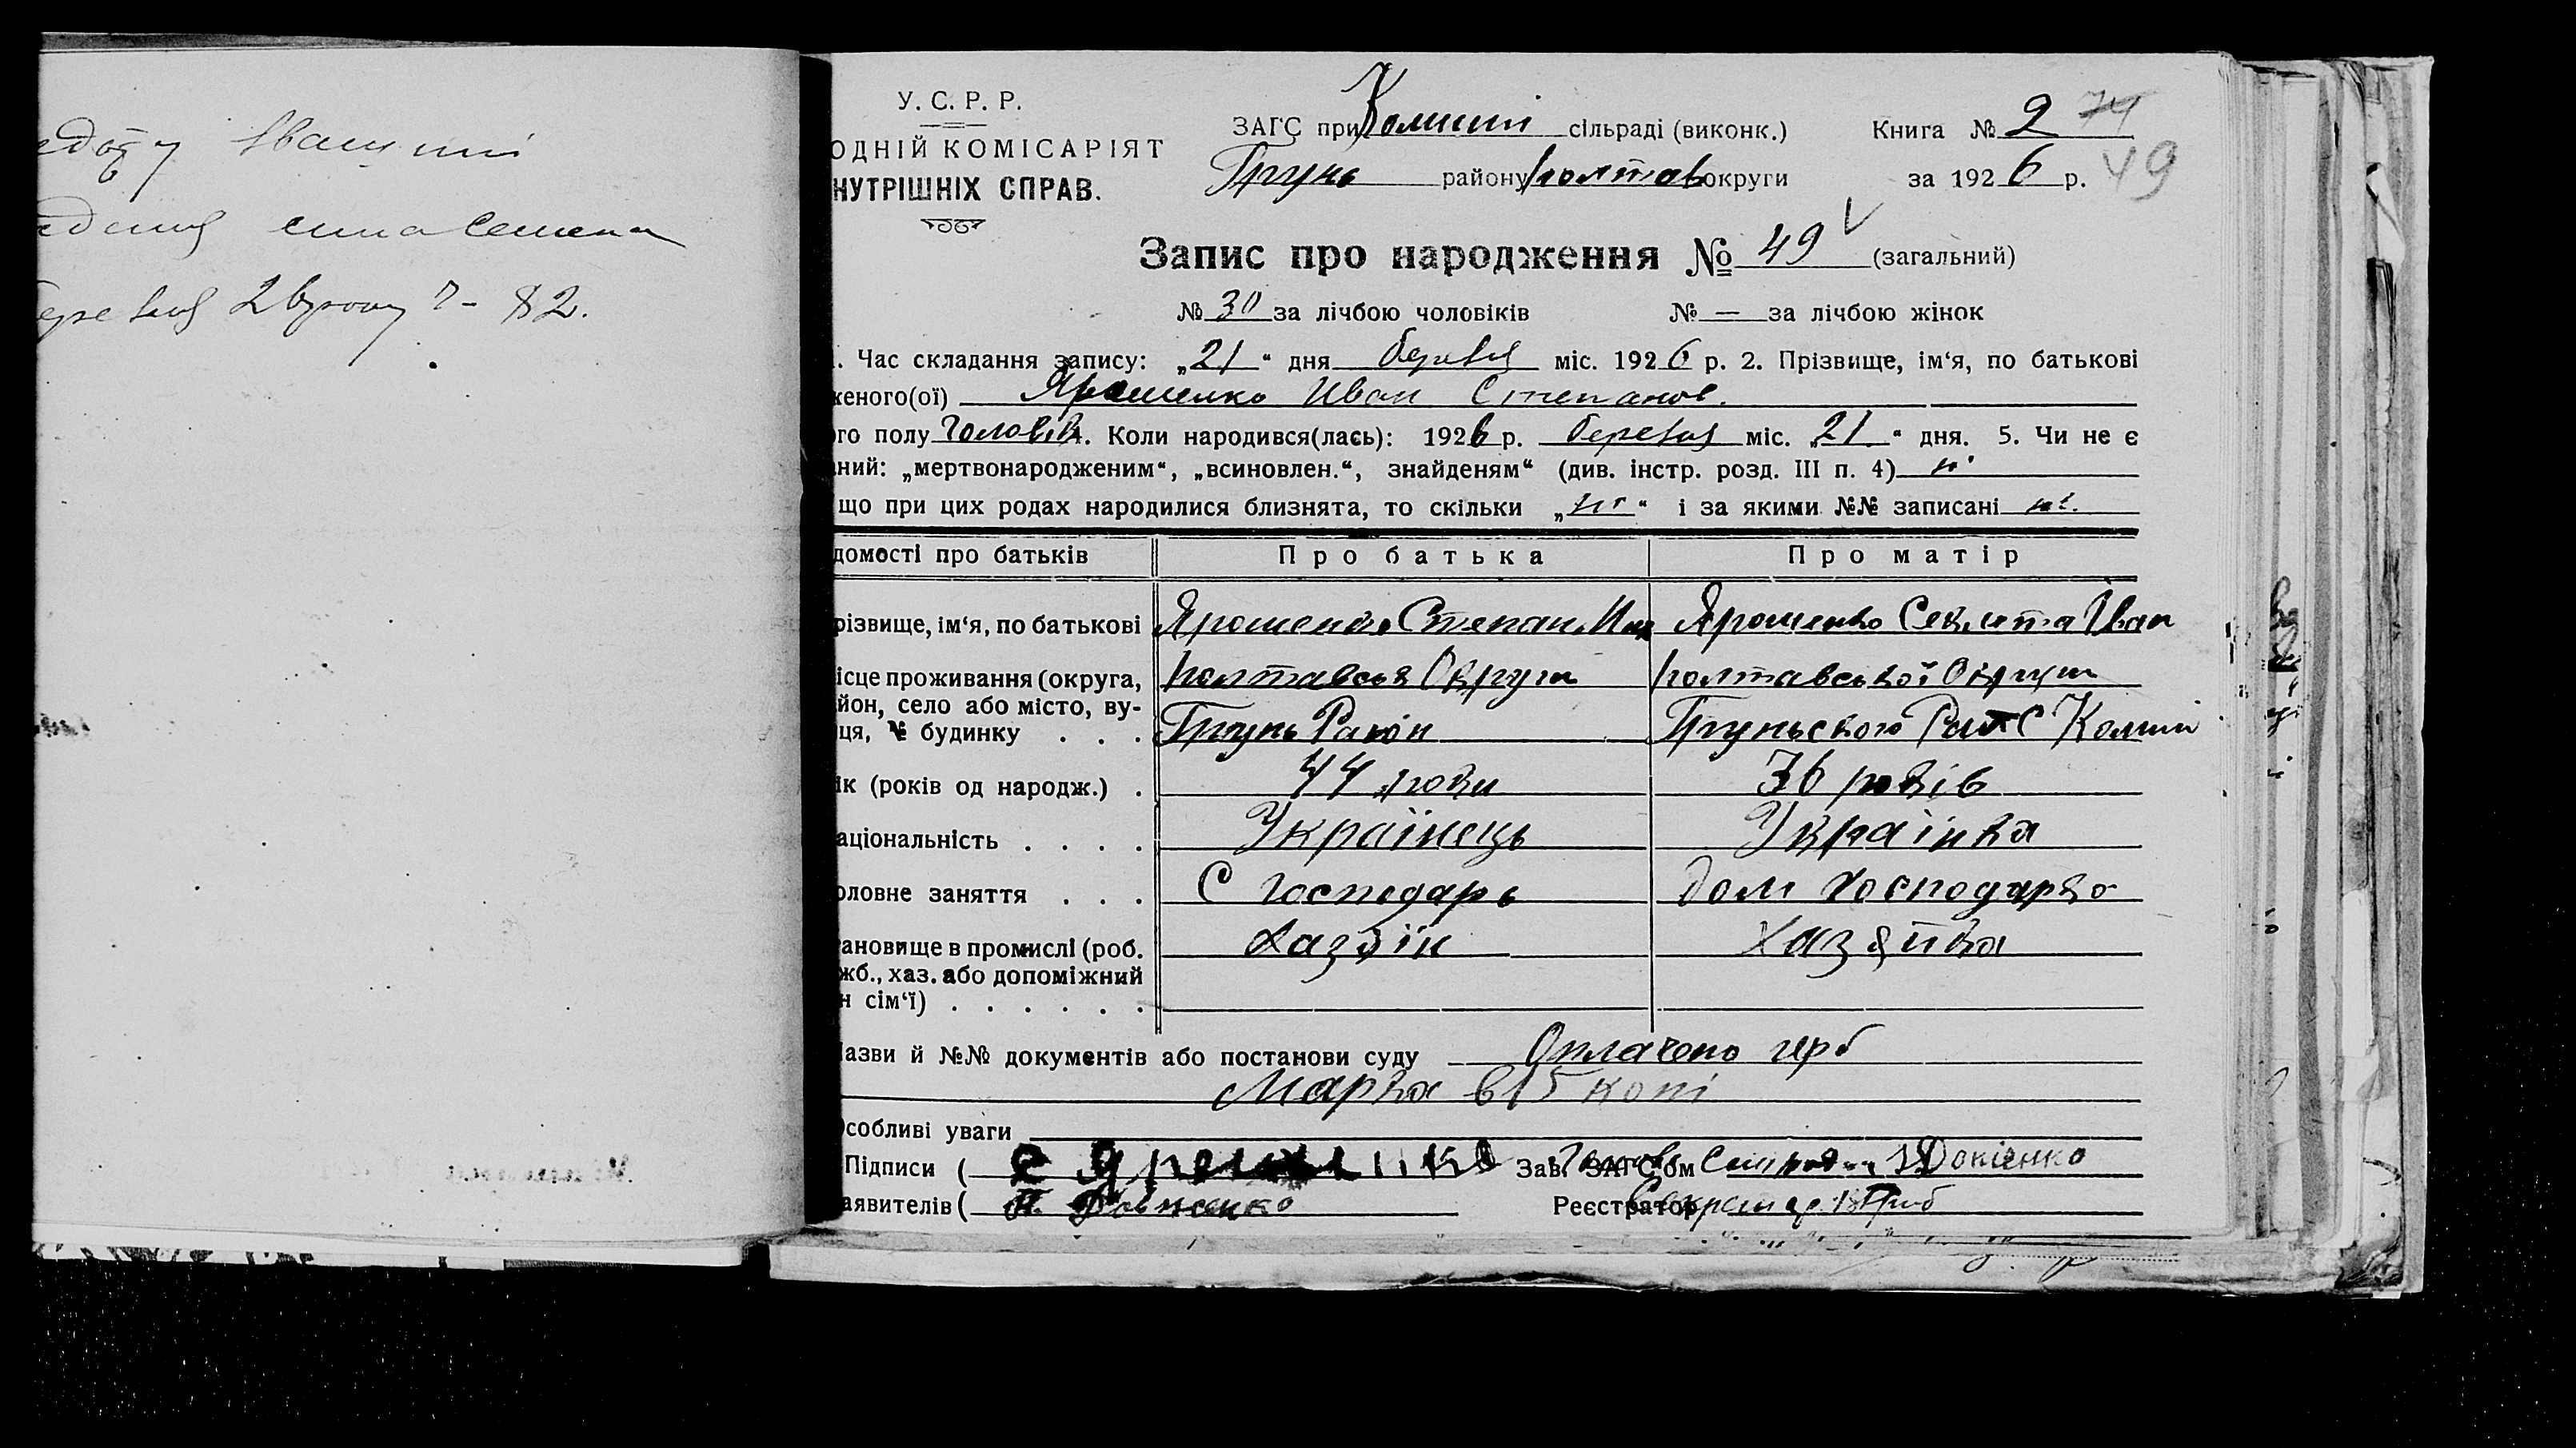 сина Семена
82.
У. С. Р. Р.
ОДНІЙ КОМІСАРІЯТ
НУТРІШНІХ СПРАВ.
ЗАГС при Комиші сільраді (виконк.)
Книга № 2 74
Грунь району Полтав округи
за 1926 р. 49
Запис про народження № 49 (загальний)
№ 30 за лічбою чоловіків № — за лічбою жінок
. Час складання запису: „21“ дня березня міс. 1926 р. 2. Прізвище, ім‘я, по батькові
женого(ої) Ярошенко Иван Степанов.
го полу Чоловік. Коли народився(лась): 1926 р. березня міс. „21“ дня. 5. Чи не є
аний: „мертвонародженим“, „всиновлен.“, знайденям“ (див. інстр. розд. III п. 4) ні
що при цих родах народилися близнята, то скільки „ні“ і за якими №№ записані ні.
домості про батьків Про батька Про матір
різвище, ім‘я, по батькові Ярошенко Степан Ярошенко Секлита Іван
ісце проживання (округа, Полтавська Округи Полтавської Округи
йон, село або місто, ву-
ця, № будинку . . . Грунь Район Грунського Рай С Комиші
ік (років од народж.) . 44 роки 36 років
аціональність . . . . Українець Українка
оловне заняття . . . С господарь дом господарка
ановище в промислі (роб. Хазяїн Хазяйка
жб., хаз. або допоміжний
н сім‘ї) . . . . . .
Назви й №№ документів або постанови суду Оплачено герб
Марка в 15 копі
собливі уваги
Підписи ( С Ярошенко Зав. ЗАГС‘ом Голова Сільради
аявителів ( Довженко Реєстратор Секретар